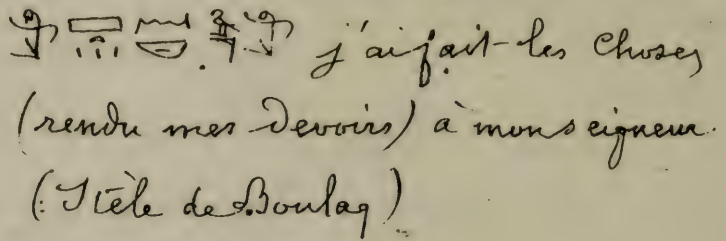 j'ai fait les choses
(rendu mes devoirs) à mon seigneur.
(: Stèle de Boulaq)